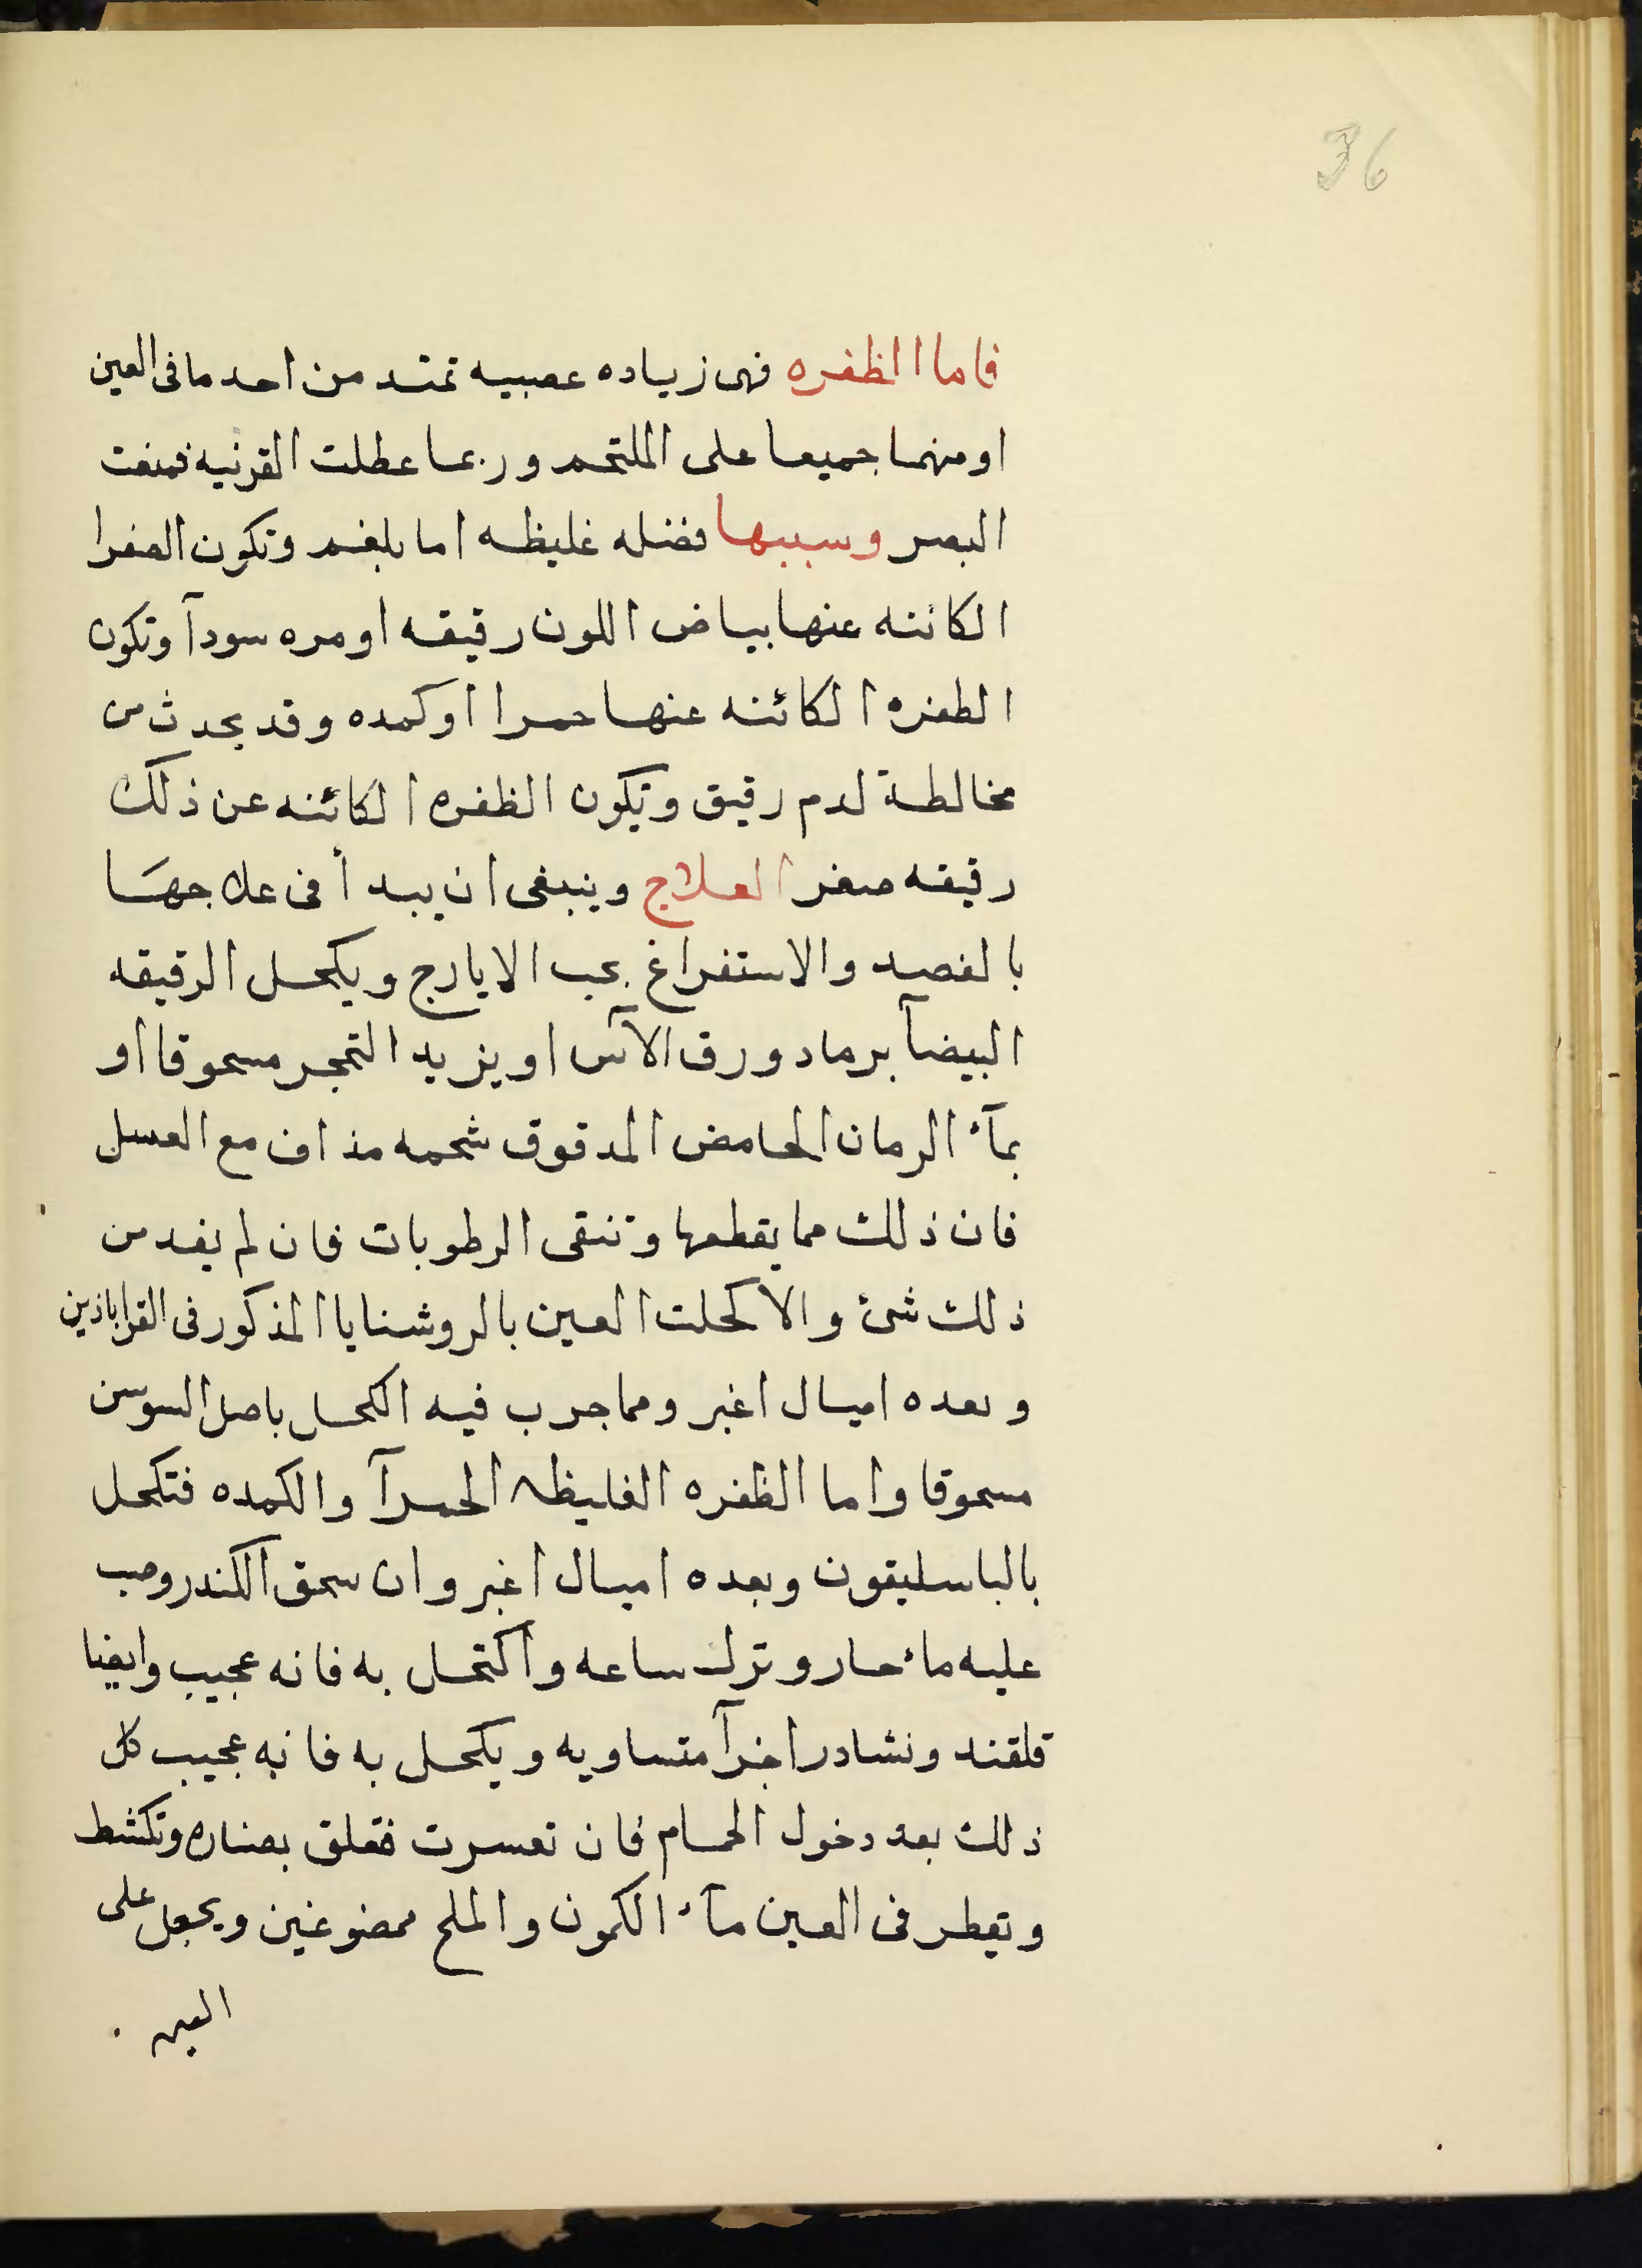 36
فاما الظفره فهى زياده عصبيه تمتد من احد ماقى العين
او منهما جميعا على الملتحم وربما عطلت القرنيه فمنعت
البصر وسببها فضله غليظه اما بلغم وتكون الصفرا
الكائنه عنها بياض اللون رقيقه او مره سودآ وتكون
الطفره الكائنه عنها حمرا او كمده وقد يحدث من
مخالطة لدم رقيق وتكون الظفره الكائنه عن ذلك
رقيقه صفر العلاج وينبغى ان يبدأ فى علاجها
بالفصد والاستفراغ بحب الايارج ويكحل الرقيقه
البيضآ برماد ورق الآس او بزبد التحجر مسحوقا او
بمآء الرمان الحامض المدقوق شحمه مذاف مع العسل
فان ذلك مما يقطعها وتنقى الرطوبات فان لم يفد من
ذلك شئ والا كحلت العين بالروشنايا المذكور فى القراباذين
وبعده اميال اغبر ومما جرب فيه الكحل باصل السوسن
مسحوقا واما الظفره الغليظه الحمرآ والكمده فتكحل
بالباسليقون وبعده اميال اغبر وان سحق الكندر وصب
عليه ماء حار وترك ساعه واكتحل به فانه عجيب وايضا
قلقند ونشادر اجزآ متساويه ويكحل به فانه عجيب كل
ذلك بعد دخول الحمام فان تعسرت فتعلق بصناره وتكشط
وتقطر فى العين مآء الكمون والملح ممضوغين ويجعل على
العين